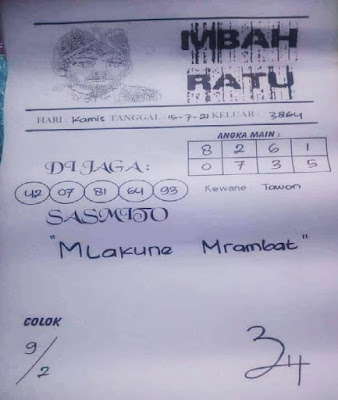 MBAH
RATU
HARI : Kamis TANGGAL : 15-7-21 KELUAR : 3864
ANGKA MAIN :
8 2 6 1
0 7 3 5
DI JAGA :
42 07 81 64 93
Kewane : Tawon
SASMITO
"MLakune Mrambat"
COLOK
9/2
34